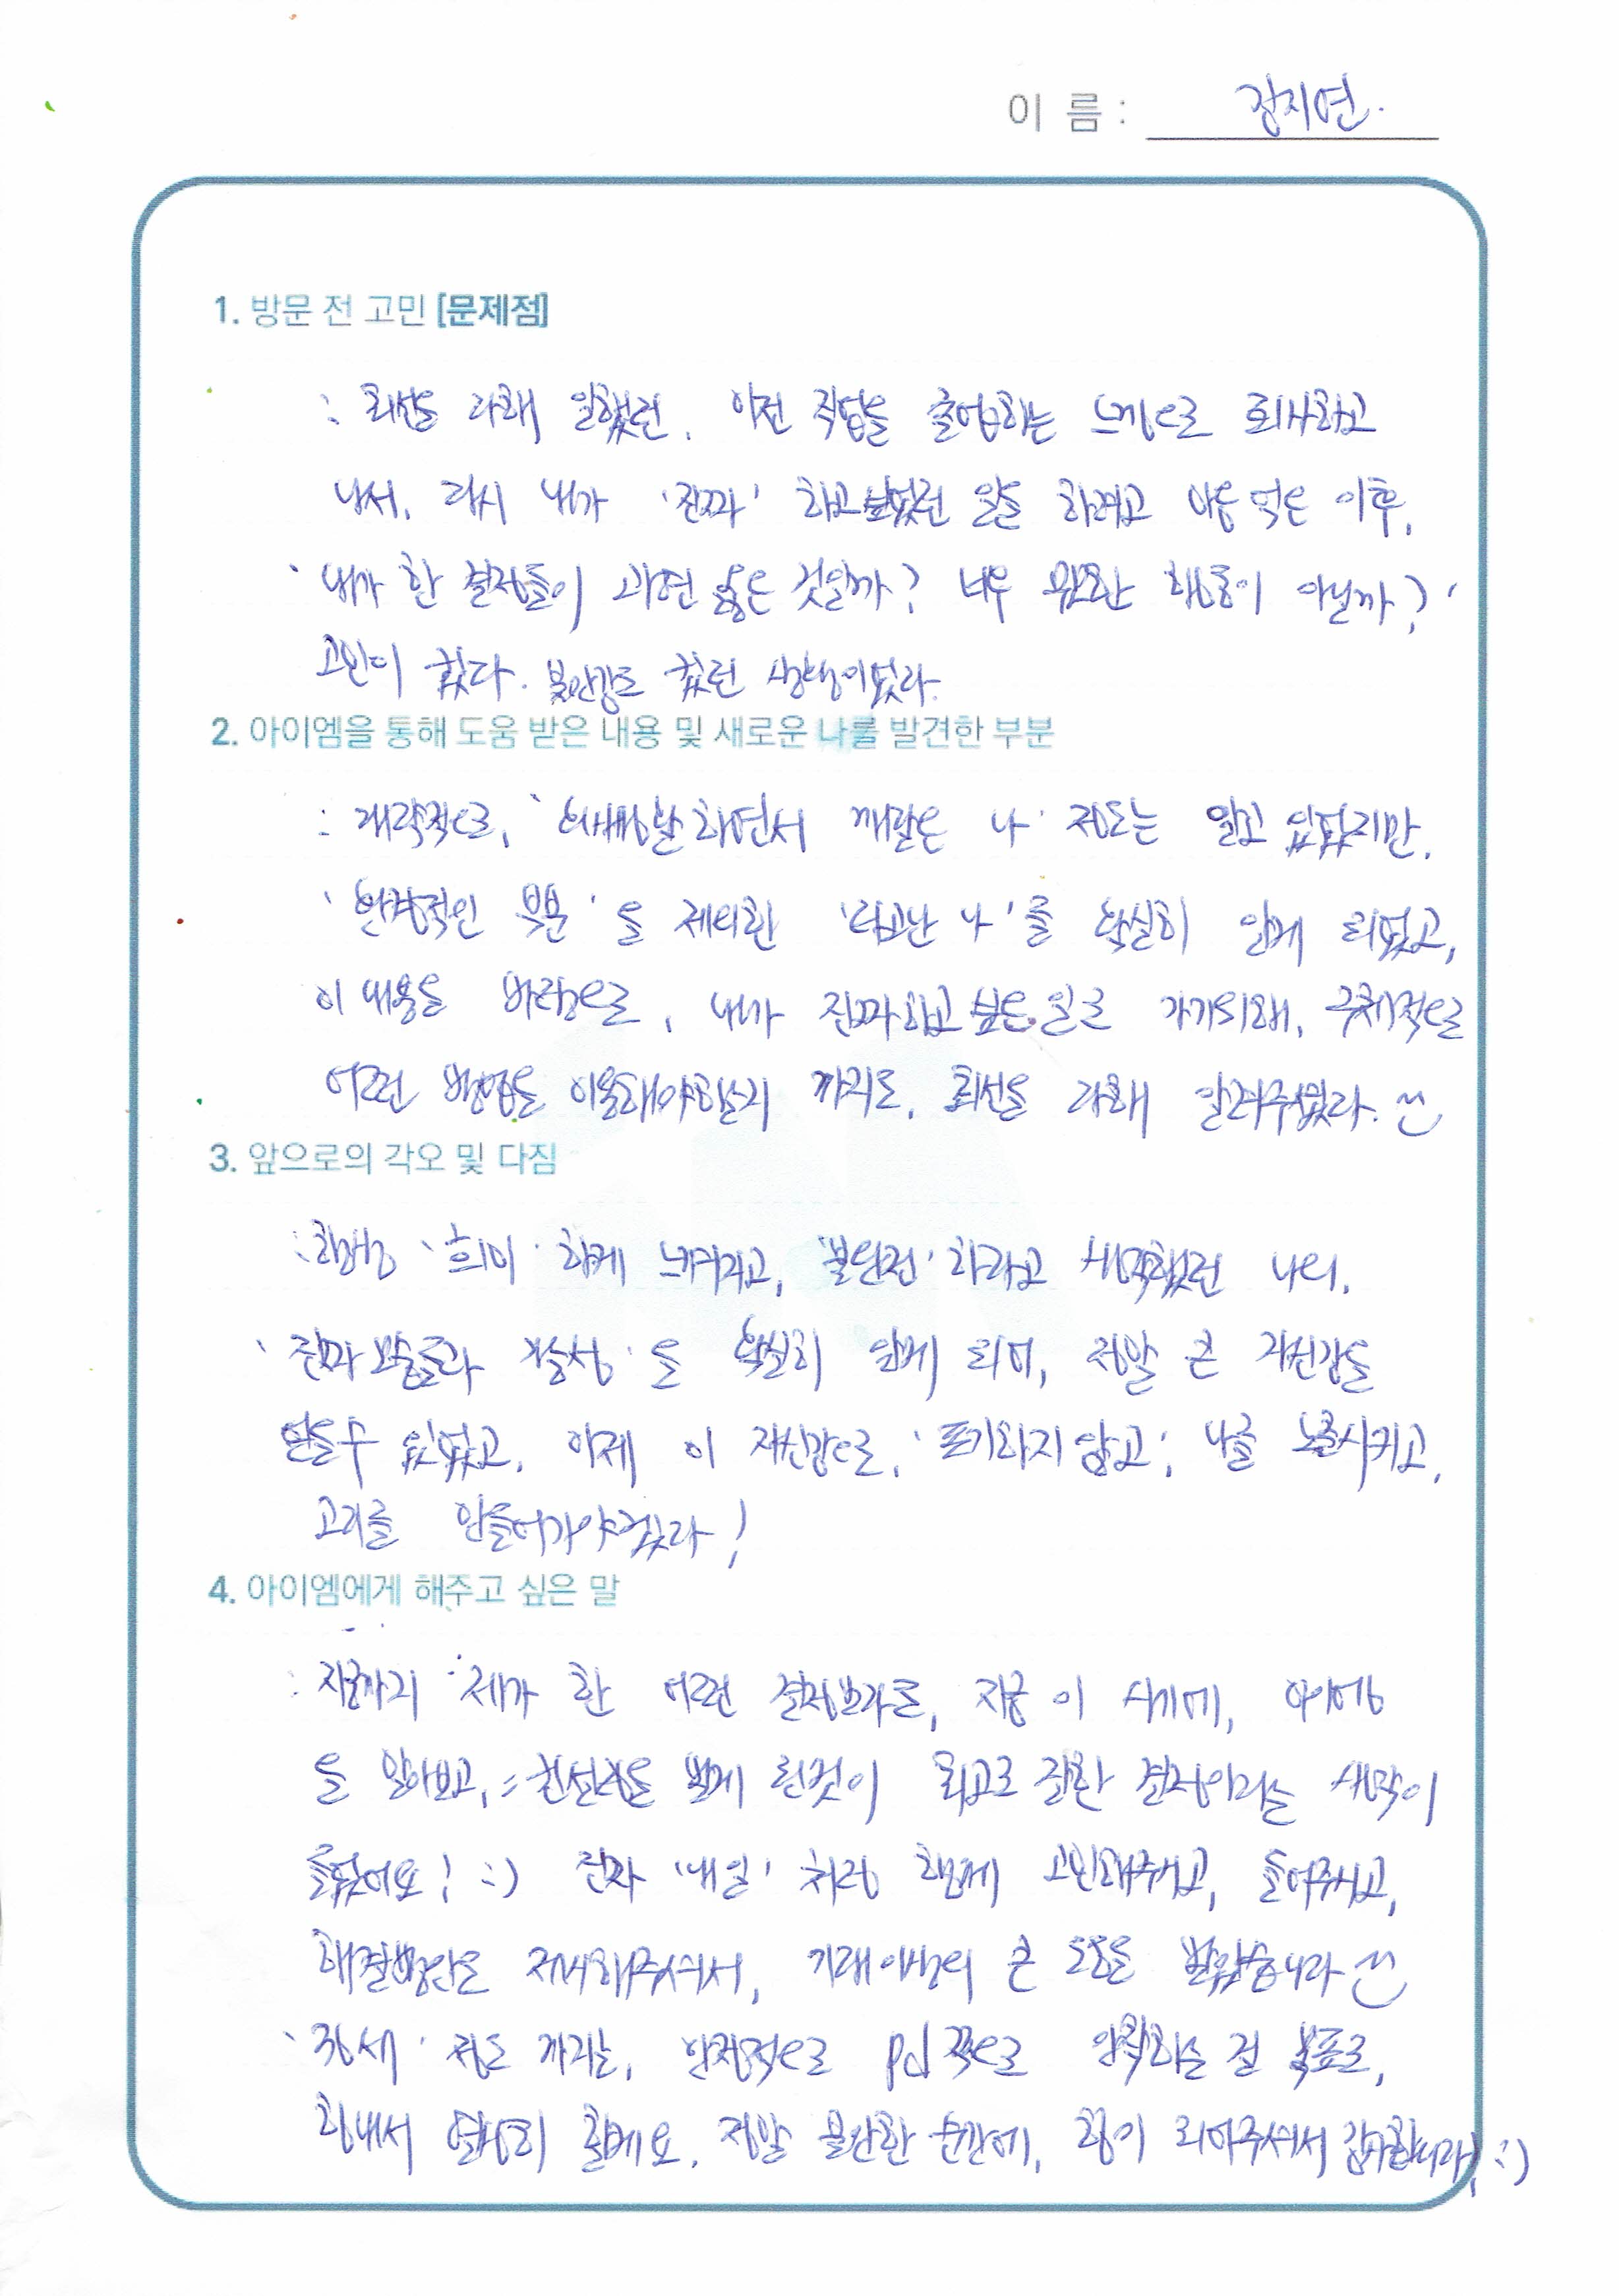 이 름 : 강지연.
1. 방문 전 고민 [문제점]
: 최선을 다해 일했던, 이전 직업을 졸업하는 느낌으로 퇴사하고
나서, 다시 내가 '진짜' 하고싶었던 일을 하려고 마음 먹은 이후,
'내가 한 결정들이 과연 옳은 것일까? 너무 무모한 행동이 아닐까?'
고민이 컸다. 불안감도 컸던 상황이었다.
2. 아이엠을 통해 도움 받은 내용 및 새로운 나를 발견한 부분
: 대략적으로, '사회생활하면서 깨달은 나' 정도는 알고 있었지만,
'환경적인 부분'을 제외한 '타고난 나'를 확실히 알게 되었고,
이 내용을 바탕으로, 내가 진짜하고 싶은 일로 가기위해, 구체적으로
어떤 방법을 이용해야할지 까지도, 최선을 다해 알려주셨다.
3. 앞으로의 각오 및 다짐
: 항상 '희미'하게 느껴지고, '불완전'하다고 생각했던 나의,
'진짜 모습들과 가능성'을 확실히 알게 되어, 정말 큰 자신감을
얻을수 있었고, 이제 이 자신감으로, '포기하지 않고', 나를 노출시키고,
고리를 만들어가야겠다!
4. 아이엠에게 해주고 싶은 말
: 지금까지 제가 한 어떤 결정보다도, 지금 이 시기에, 아이엠
을 알아보고, 컨설팅을 받게 된것이 최고로 잘한 결정이라는 생각이
들었어요! :) 진짜 '내 일' 처럼 함께 고민해주시고, 들어주시고,
해결방안도 제시해주셔서, 기대 이상의 큰 도움을 받았습니다
정도 까지는, 안정적으로 pd 쪽으로 안착하는 걸 목표로,
힘내서 열심히 할게요. 정말 불안한 순간에, 힘이 되어주셔서 감사합니다! :)